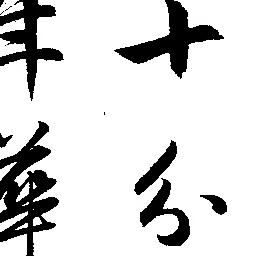 十分
年華